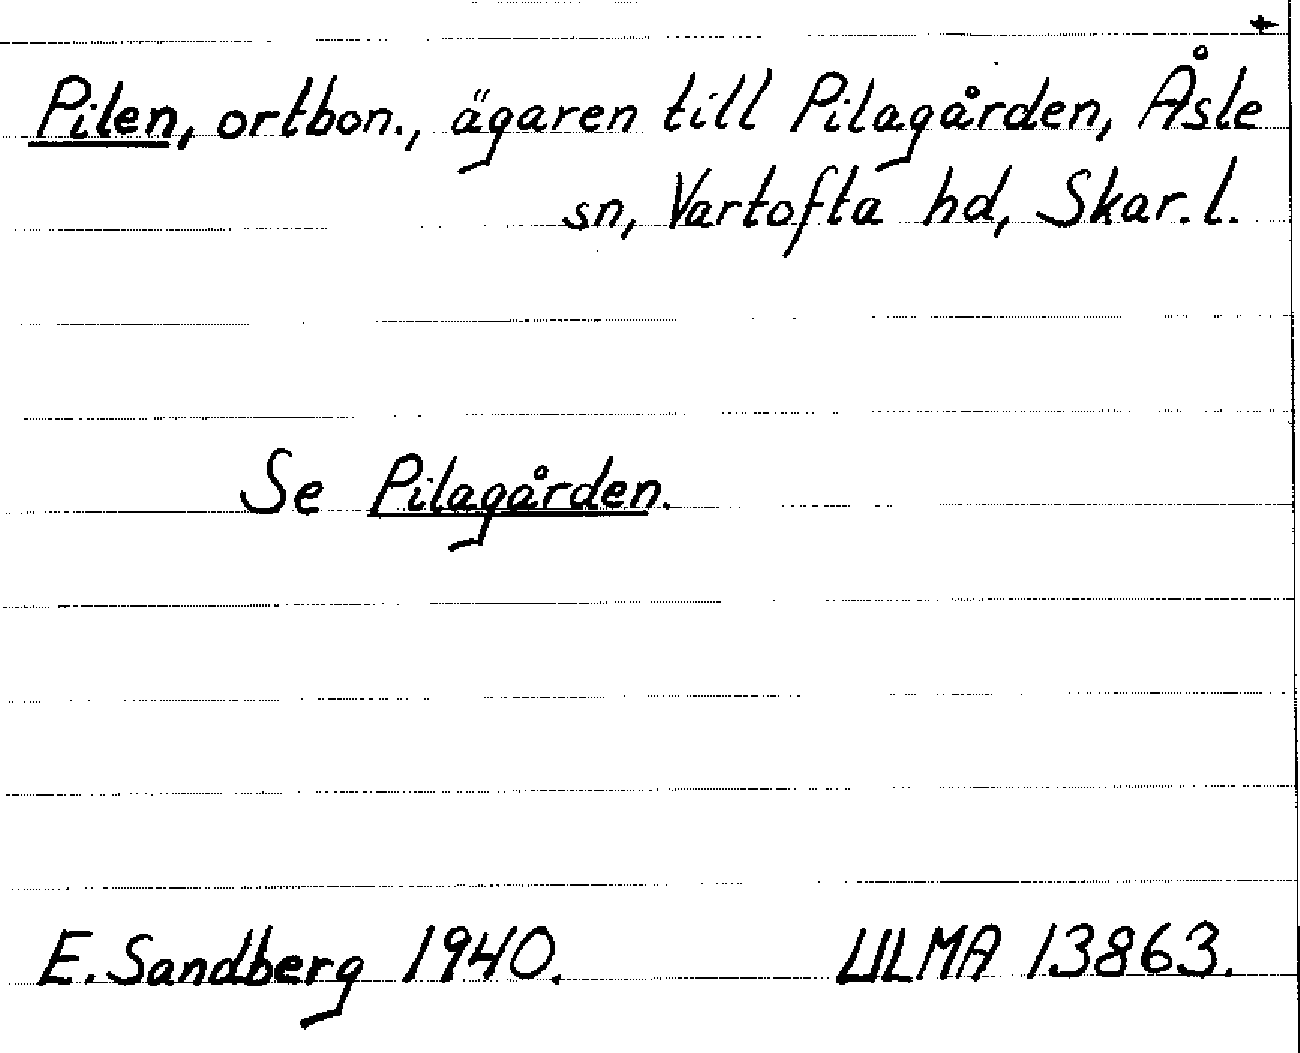 +
Pilen, ortbon., ägaren till Pilagården, Åsle
sn, Vartofta hd, Skar. l.
Se Pilagården.
E. Sandberg 1940. ULMA 13863.